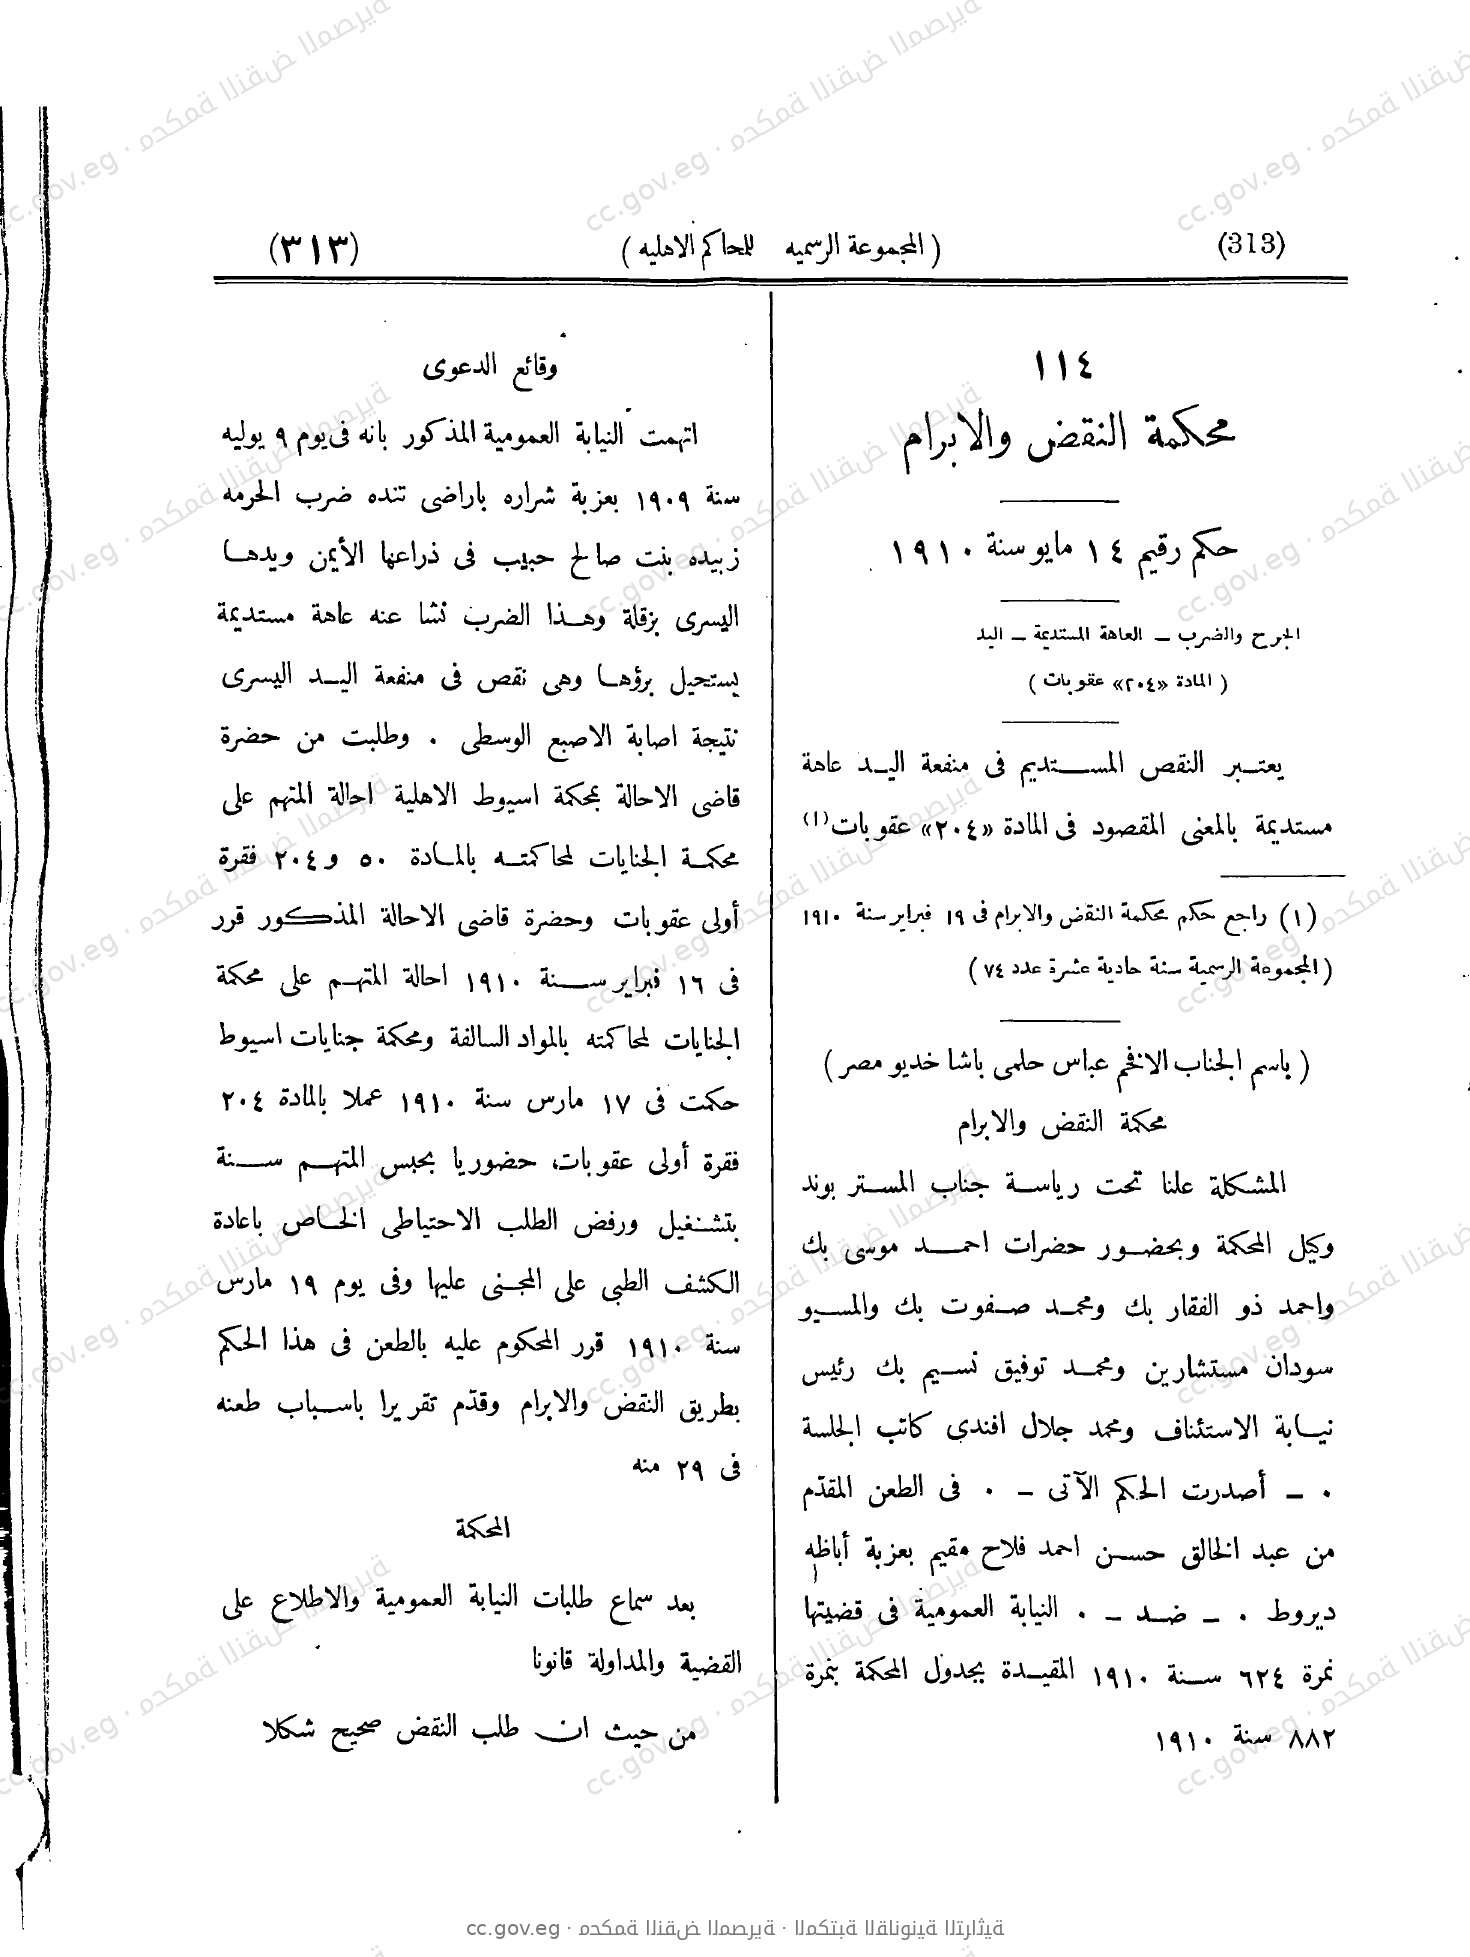 (313) ( المجموعة الرسميه للمحاكم الاهليه ) (٣١٣)
١١٤
محكمة النقض والابرام
حكم رقيم ١٤ مايو سنة ١٩١٠
الجرح والضرب – العاهة المستديمة – اليد
( المادة «٢٠٤» عقوبات )
يعتبر النقص المستديم فى منفعة اليد عاهة
مستديمة بالمعنى المقصود فى المادة «٢٠٤» عقوبات (١)
(١) راجع حكم محكمة النقض والابرام فى ١٩ فبراير سنة ١٩١٠
( المجموعة الرسمية سنة حادية عشرة عدد ٧٤ )
( باسم الجناب الافخم عباس حلمى باشا خديو مصر )
محكمة النقض والابرام
المشكلة علنا تحت رياسة جناب المستر بوند
وكيل المحكمة وبحضور حضرات احمد موسى بك
واحمد ذو الفقار بك ومحمد صفوت بك والمسيو
سودان مستشارين ومحمد توفيق نسيم بك رئيس
نيابة الاستئناف ومحمد جلال افندى كاتب الجلسة
٠ – أصدرت الحكم الآتى – ٠ فى الطعن المقدّم
من عبد الخالق حسن احمد فلاح مقيم بعزبة أباظه
ديروط ٠ – ضد – ٠ النيابة العمومية فى قضيتها
نمرة ٦٢٤ سنة ١٩١٠ المقيدة بجدول المحكمة بنمرة
٨٨٢ سنة ١٩١٠
وقائع الدعوى
اتهمت النيابة العمومية المذكور بانه فى يوم ٩ يوليه
سنة ١٩٠٩ بعزبة شراره باراضى تنده ضرب الحرمه
زبيده بنت صالح حبيب فى ذراعها الأيمن ويدها
اليسرى بزقلة وهذا الضرب نشا عنه عاهة مستديمة
يستحيل برؤها وهى نقص فى منفعة اليد اليسرى
نتيجة اصابة الاصبع الوسطى . وطلبت من حضرة
قاضى الاحالة بمحكمة اسيوط الاهلية احالة المتهم على
محكمة الجنايات لمحاكمته بالمادة ٥٠ و ٢٠٤ فقرة
أولى عقوبات وحضرة قاضى الاحالة المذكور قرر
فى ١٦ فبراير سنة ١٩١٠ احالة المتهم على محكمة
الجنايات لمحاكمته بالمواد السالفة ومحكمة جنايات اسيوط
حكمت فى ١٧ مارس سنة ١٩١٠ عملا بالمادة ٢٠٤
فقرة أولى عقوبات، حضوريا بحبس المتهم سنة
بتشغيل ورفض الطلب الاحتياطى الخاص باعادة
الكشف الطبى على المجنى عليها وفى يوم ١٩ مارس
سنة ١٩١٠ قرر المحكوم عليه بالطعن فى هذا الحكم
بطريق النقض والابرام وقدّم تقريرا باسباب طعنه
فى ٢٩ منه
المحكمة
بعد سماع طلبات النيابة العمومية والاطلاع على
القضية والمداولة قانونا
من حيث ان طلب النقض صحيح شكلا
cc.gov.eg · محكمة النقض المصرية · المكتبة القانونية التراثية